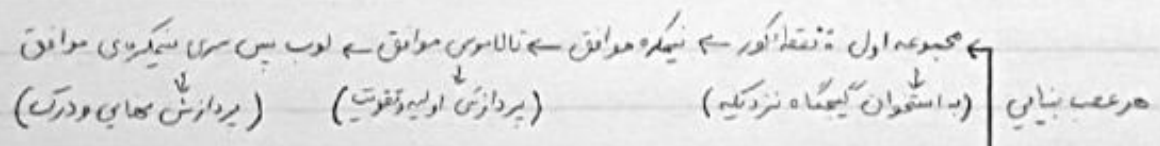 ← مجموعه اول: نقطه کور ← نیمکره موافق ← تالاموس موافق ← لوب پس سری نیمکره‌ی موافق
هر عصب بینایی (به استخوان گیجگاه نزدیکه) (پردازش اولیه و تقویت) (پردازش نهایی و درک)